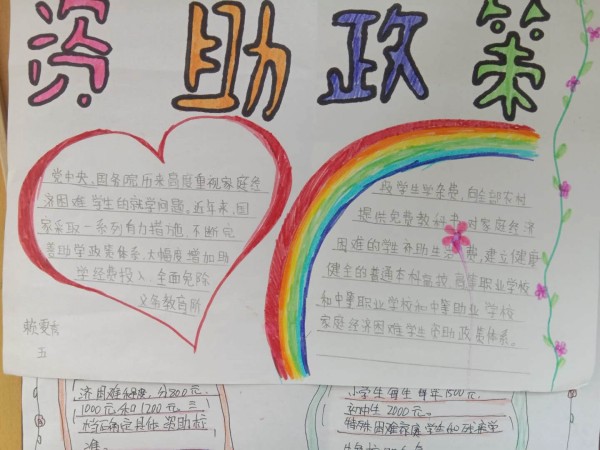 资助政策
党中央、国务院历来高度重视家庭经
济困难学生的就学问题。近年来,国
家采取一系列有力措施,不断完
善助学政策体系,大幅度增加助
学经费投入,全面免除
义务教育阶
段学生学杂费,向全部农村
提供免费教科书,对家庭经济
困难的学生补助生 费,建立健康
健全的普通本科高校、高等职业学校
和中等职业学校和中等助业学校
家庭经济困难学生资助政策体系。
五
济困难程度,分800元、
1000元和1200元三
档确定具体资助标
准。
小学生每生每年1500元,
初中生2000元。
特殊困难家庭学生和